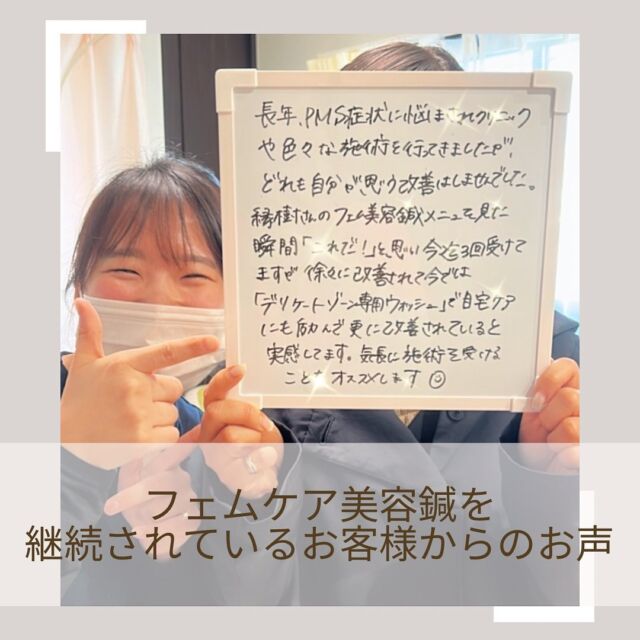 長年、PMS症状に悩まされクリニック
や色々な施術を行ってきましたが、
どれも自分が思う改善はしませんでした。
縁樹さんのフェム美容鍼メニューを見た
瞬間「これだ!」と思い今迄3回受けて
ますが徐々に改善されて今では
「デリケートゾーン専用ウォッシュ」で自宅ケア
にも励んで更に改善されていると
実感してます。気長に施術を受ける
ことをオススメします☺
フェムケア美容鍼を
継続されているお客様からのお声